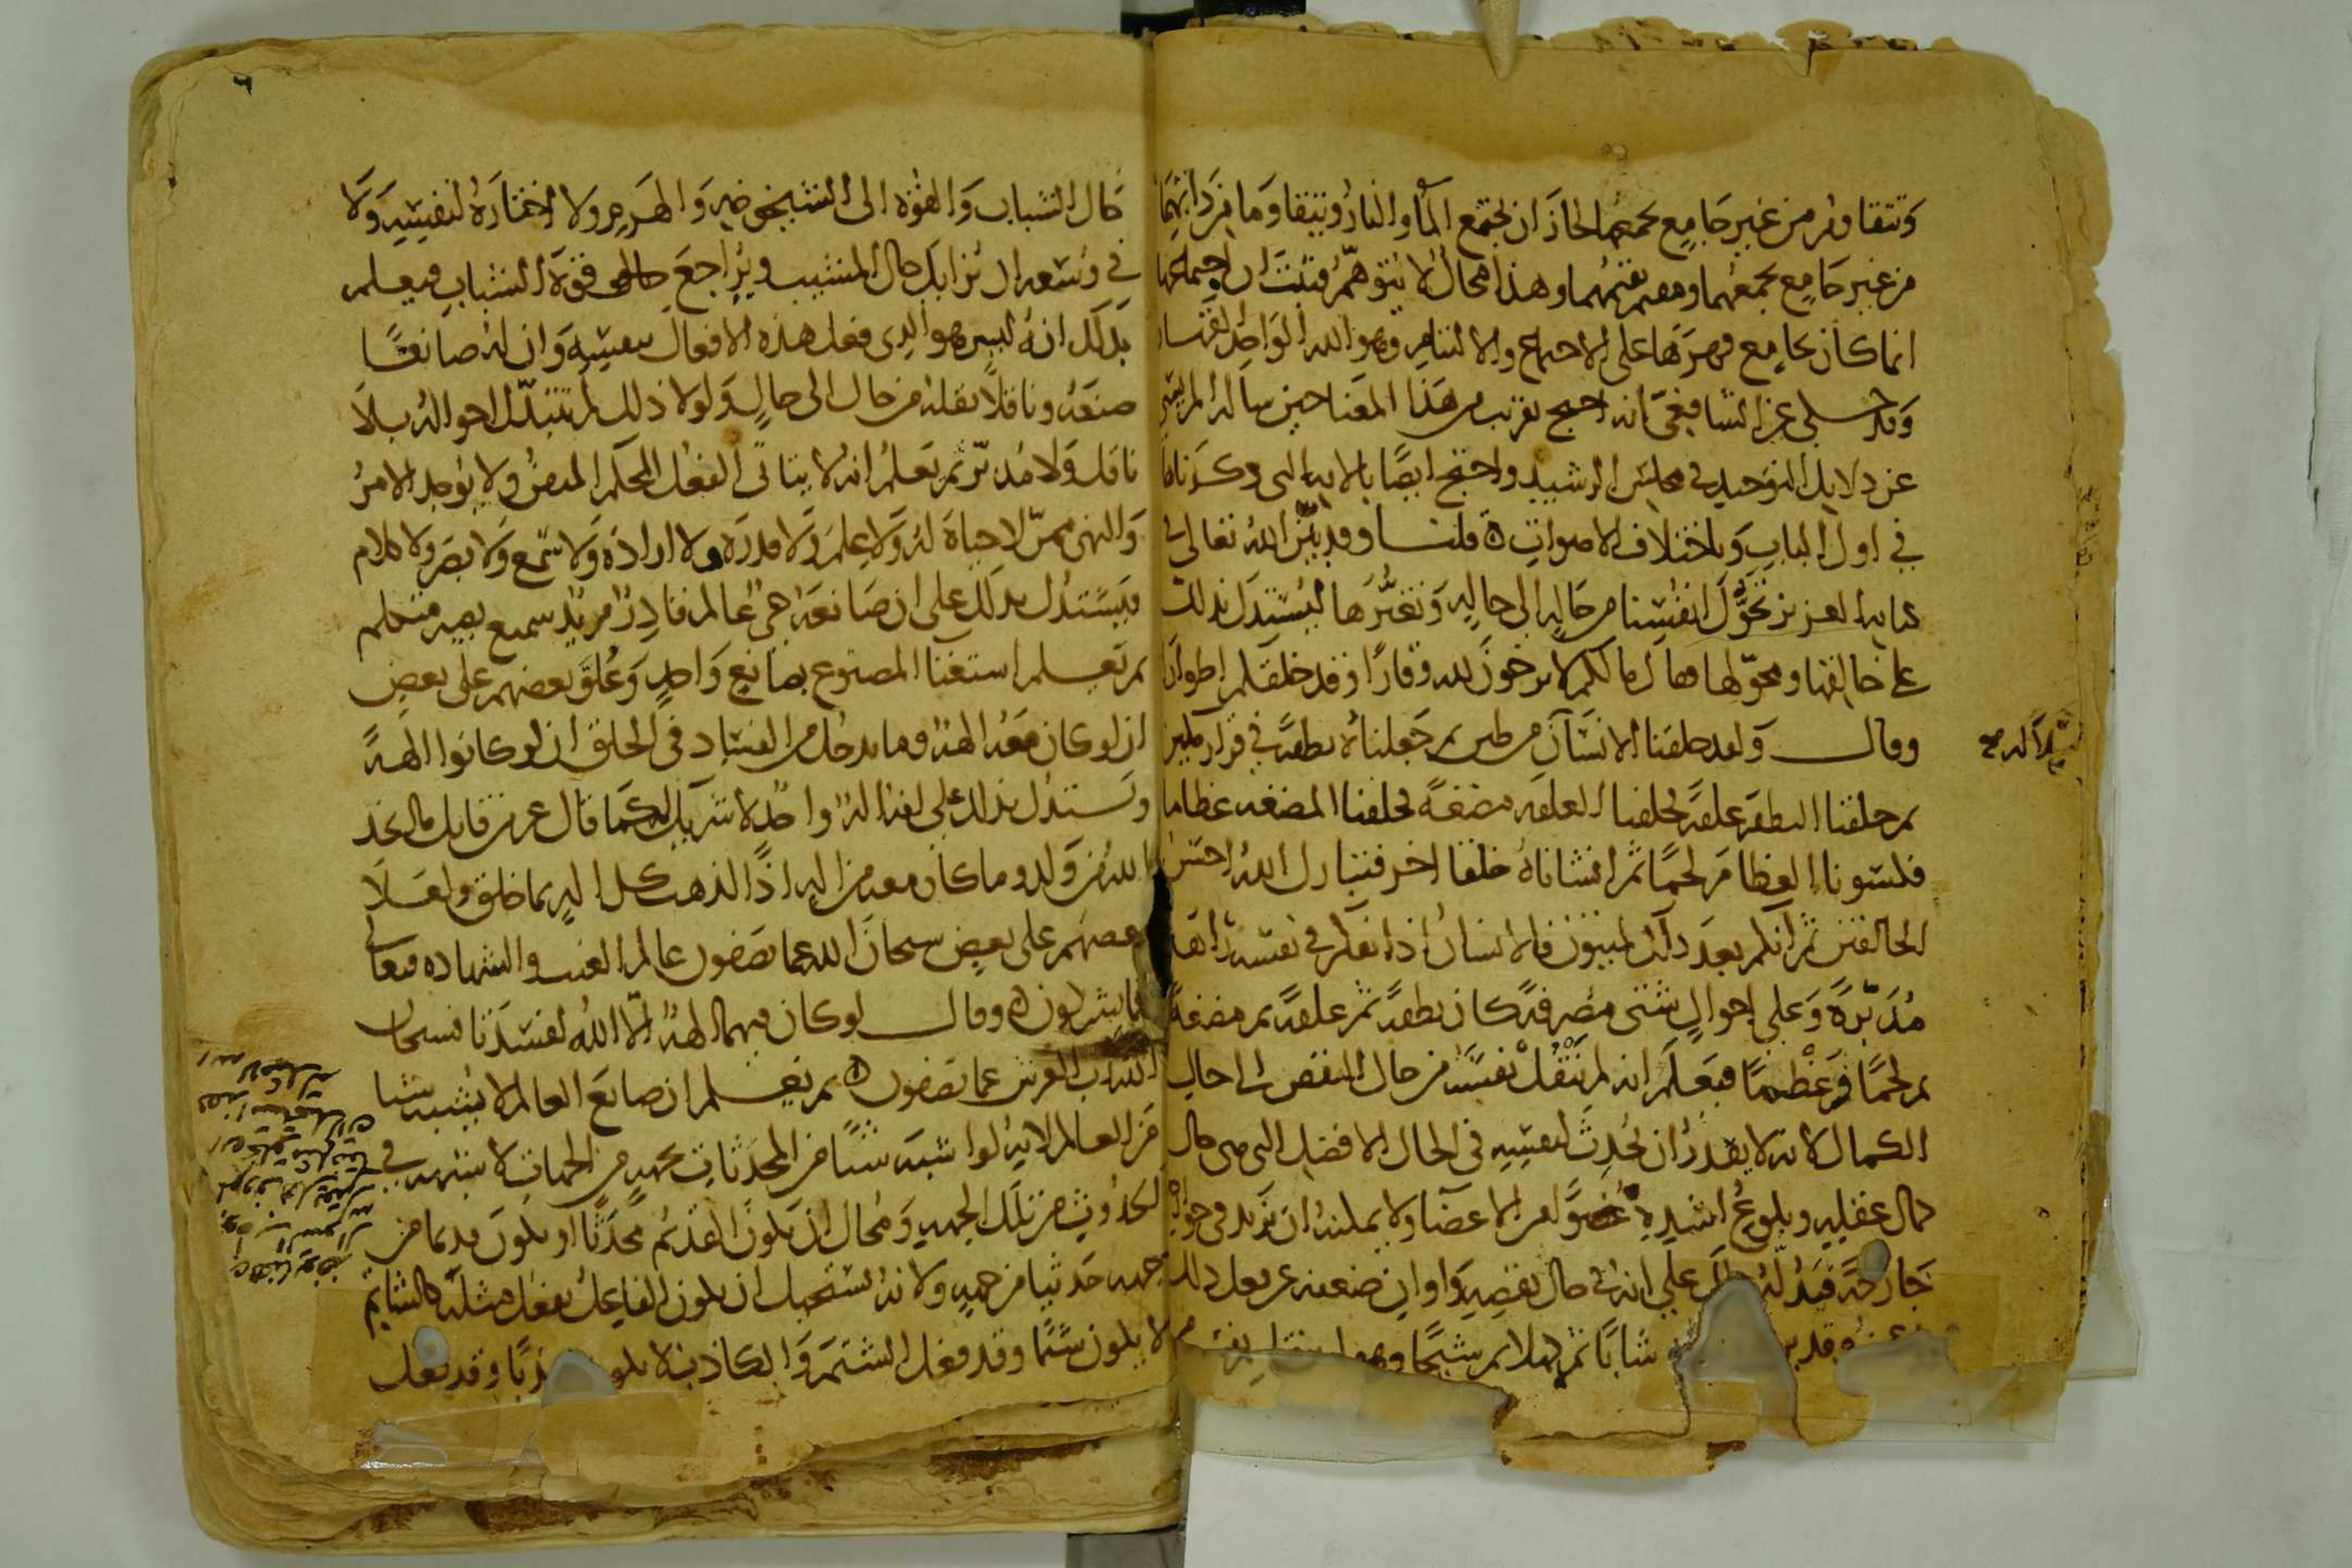 وتتقاوم من غير جامع يجمعهما لجاز ان يجتمع الماء والنار ويتقاوما من ذاتهما
من غير جامع يجمعهما ومقيم يقيمهما وهذا محال لا يتوهم فثبت ان اجتماعها
انما كان بجامع قهرها على الاجتماع والالتئام وهو الله الواحد القهار
وقد حكي عن الشافعي انه احتج بقريب من هذا المعنا حين ساله المريسي
عن دلايل التوحيد في مجلس الرشيد واحتج ايضا بالايه التي ذكرناها
في اول الباب وباختلاف الاصوات ه قلنا وقد بين الله تعالى في
كتابه العزيز تحول انفسنا من حاله الى حاله وتغيرها ليستدل بذلك
على خالقها ومحولها فقال مالكم لا ترجون لله وقارا وقد خلقكم اطوارا
وقال ولقد خلقنا الانسان من طين ثم جعلناه نطفة في قرار مكين
ثم خلقنا النطفة علقة فخلقنا العلقه مضغة فخلقنا المضغه عظاما
فكسونا العظام لحما ثم انشاناه خلقا اخر فتبارك الله احسن
الخالقين ثم انكم بعد ذلك لميتون فالانسان اذا تفكر في نفسه راها
مدبرة وعلى احوال شتى مصرفة كان نطفة ثم علقة ثم مضغة
ثم لحما وعظما فيعلم انه لم ينقل نفسه من حال النقص الى حال
الكمال لانه لا يقدر ان يحدث لنفسه في الحال الافضل التي هي حال
كمال عقله وبلوغ اشده عضوا من الاعضا ولا يمكنه ان يزيد في جوارحه
جارحة فيدله ذلك على انه في حال نقصه واوان ضعفه عن فعل ذلك
وقد شابا ثم كهلا ثم شيخا وهو لم ينقل نفسه من
حال الشباب والقوة الى الشيخوخيه والهرم ولا اختاره لنفسه ولا
في وسعه ان يزايل حال المشيب ويراجع قوة الشباب فيعلم
بذلك انه ليس هو الذي فعل هذه الافعال بنفسه وان له صانعا
صنعه وناقلا نقله من حال الى حال ولولا ذلك لم تتبدل احواله بلا
ناقل ولا مدبر ثم يعلم انه لا يتاتى الفعل المحكم المتقن ولا يوجد الامر
والنهي ممن لا حياة له ولا علم ولا قدرة ولا ارادة ولا سمع ولا بصر ولا كلام
فيستدل بذلك على ان صانعه حي عالم قادر مريد سميع بصير متكلم
ثم يعلم استغنا المصنوع بصانع واحد وعلو بعضهم على بعض
ان لو كان معه الهة وما يدخل من الفساد في الخلق ان لو كانوا الهة
ويستدل بذلك على انه اله واحد لا شريك له كما قال عز من قايل ما اتخذ
الله من ولد وما كان معه من اله اذا لذهب كل اله بما خلق ولعلا
بعضهم على بعض سبحان الله عما يصفون عالم الغيب والشهاده فتعالى
عما يشركون ه وقال لو كان فيهما الهة الا الله لفسدتا فسبحان
الله رب العرش عما يصفون ه ثم يعلم ان صانع العالم لا يشبه شيا
من العالم لانه لو اشبه شيئا من المحدثات بجهه من الجهات لاشبهه في
الحدوث من تلك الجهه ومحال ان يكون القديم محدثا او يكون قديما من
جهه حديثا من جهه ولانه يستحيل ان يكون الفاعل يفعل مثله كالشاتم
لا يكون شتما وقد فعل الشتم والكاذب لا يكون كذبا وقد فعل